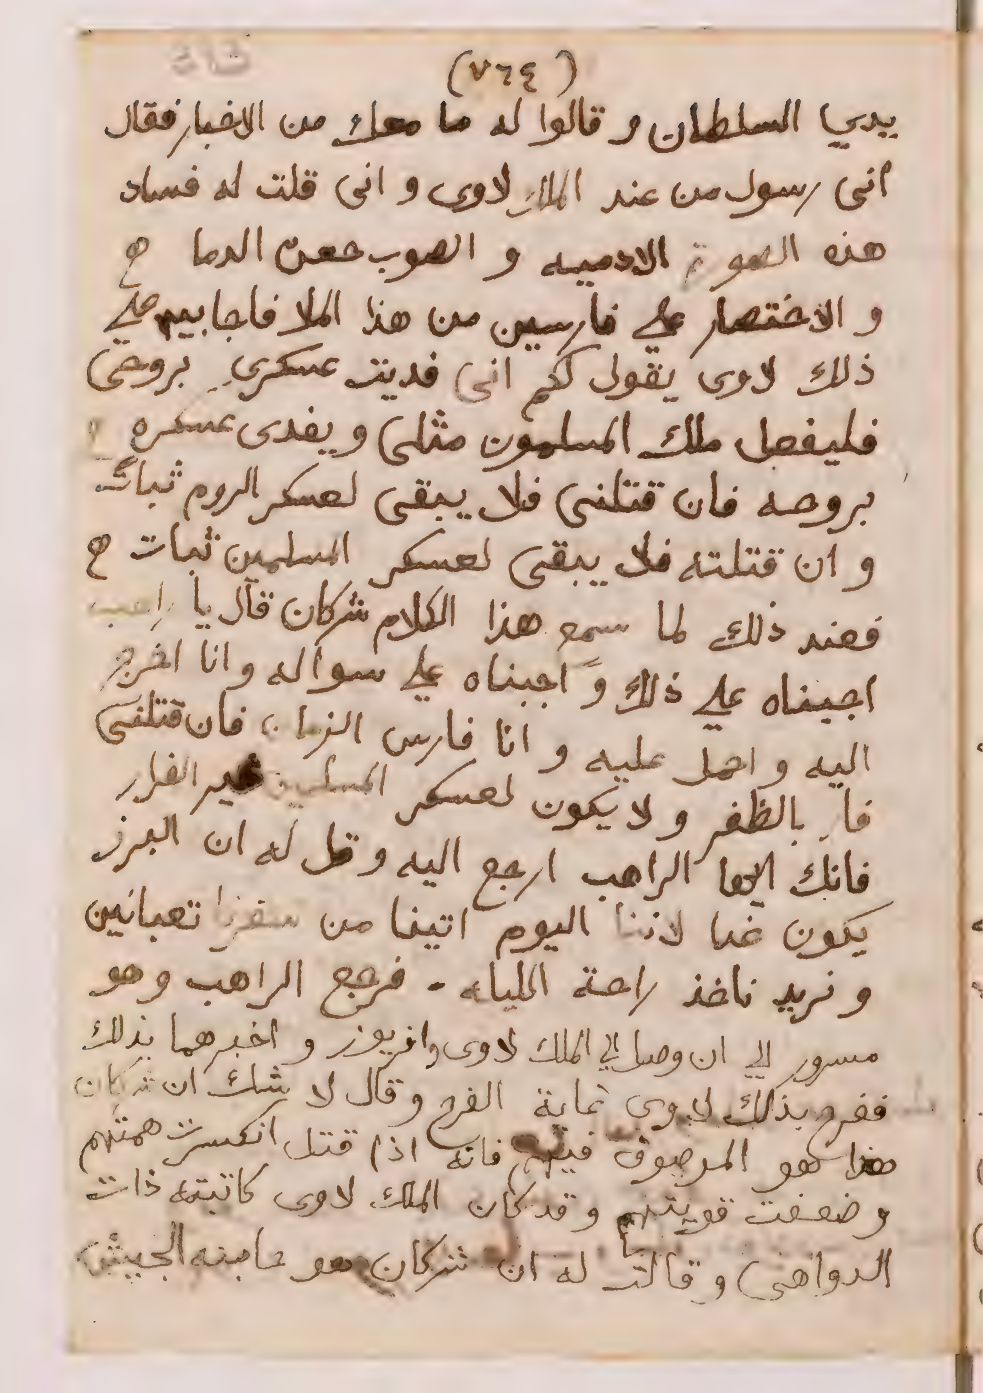 (٧٦٤)
يدي السلطان و قالوا له ما معك من الاخبار فقال
انى رسول من عند الملك لاوى و انى قلت له فساد
هذه الصورة الادميه و الصوب حعن الدما ح
و الاختصار علي فارسين من هذا الملا فاجابهم علي
ذلك لاوى يقول لكم انى فديت عسكري بروحى
فليفعل ملك المسلمون مثلى و يفدى عسكره
بروحه فان قتلنى فلا يبقى لعسكر الروم ثبات
و ان قتلته فلا يبقى لعسكر المسلمين ثبات ح
فعند ذلك لما سمع هذا الكلام شركان قال يا راهب
اجبناه علي ذلك و اجبناه علي سواله و انا اخرج
اليه و احمل عليه و انا فارس الزمان فان قتلنى
فاز بالظفر و لا يكون لعسكر المسلمين غير الفرار
فانك ايها الراهب ارجع اليه و قل له ان البرز
يكون غدا لاننا اليوم اتينا من سفرنا تعبانين
و نريد ناخذ راحة الليله - فرجع الراهب وهو
مسرور الي ان وصل الي الملك لاوى وافريوز و اخبرهما بذلك
ففرح بذلك لاوى غاية الفرح وقال لا شك ان شركان
هذا هو الموصوف فيهم فانه اذا قتل انكسرت همتهم
و ضعفت قويتهم و قد كان الملك لاوى كاتبته ذات
الدواهى و قالت له ان شركان هو حامية الجيش